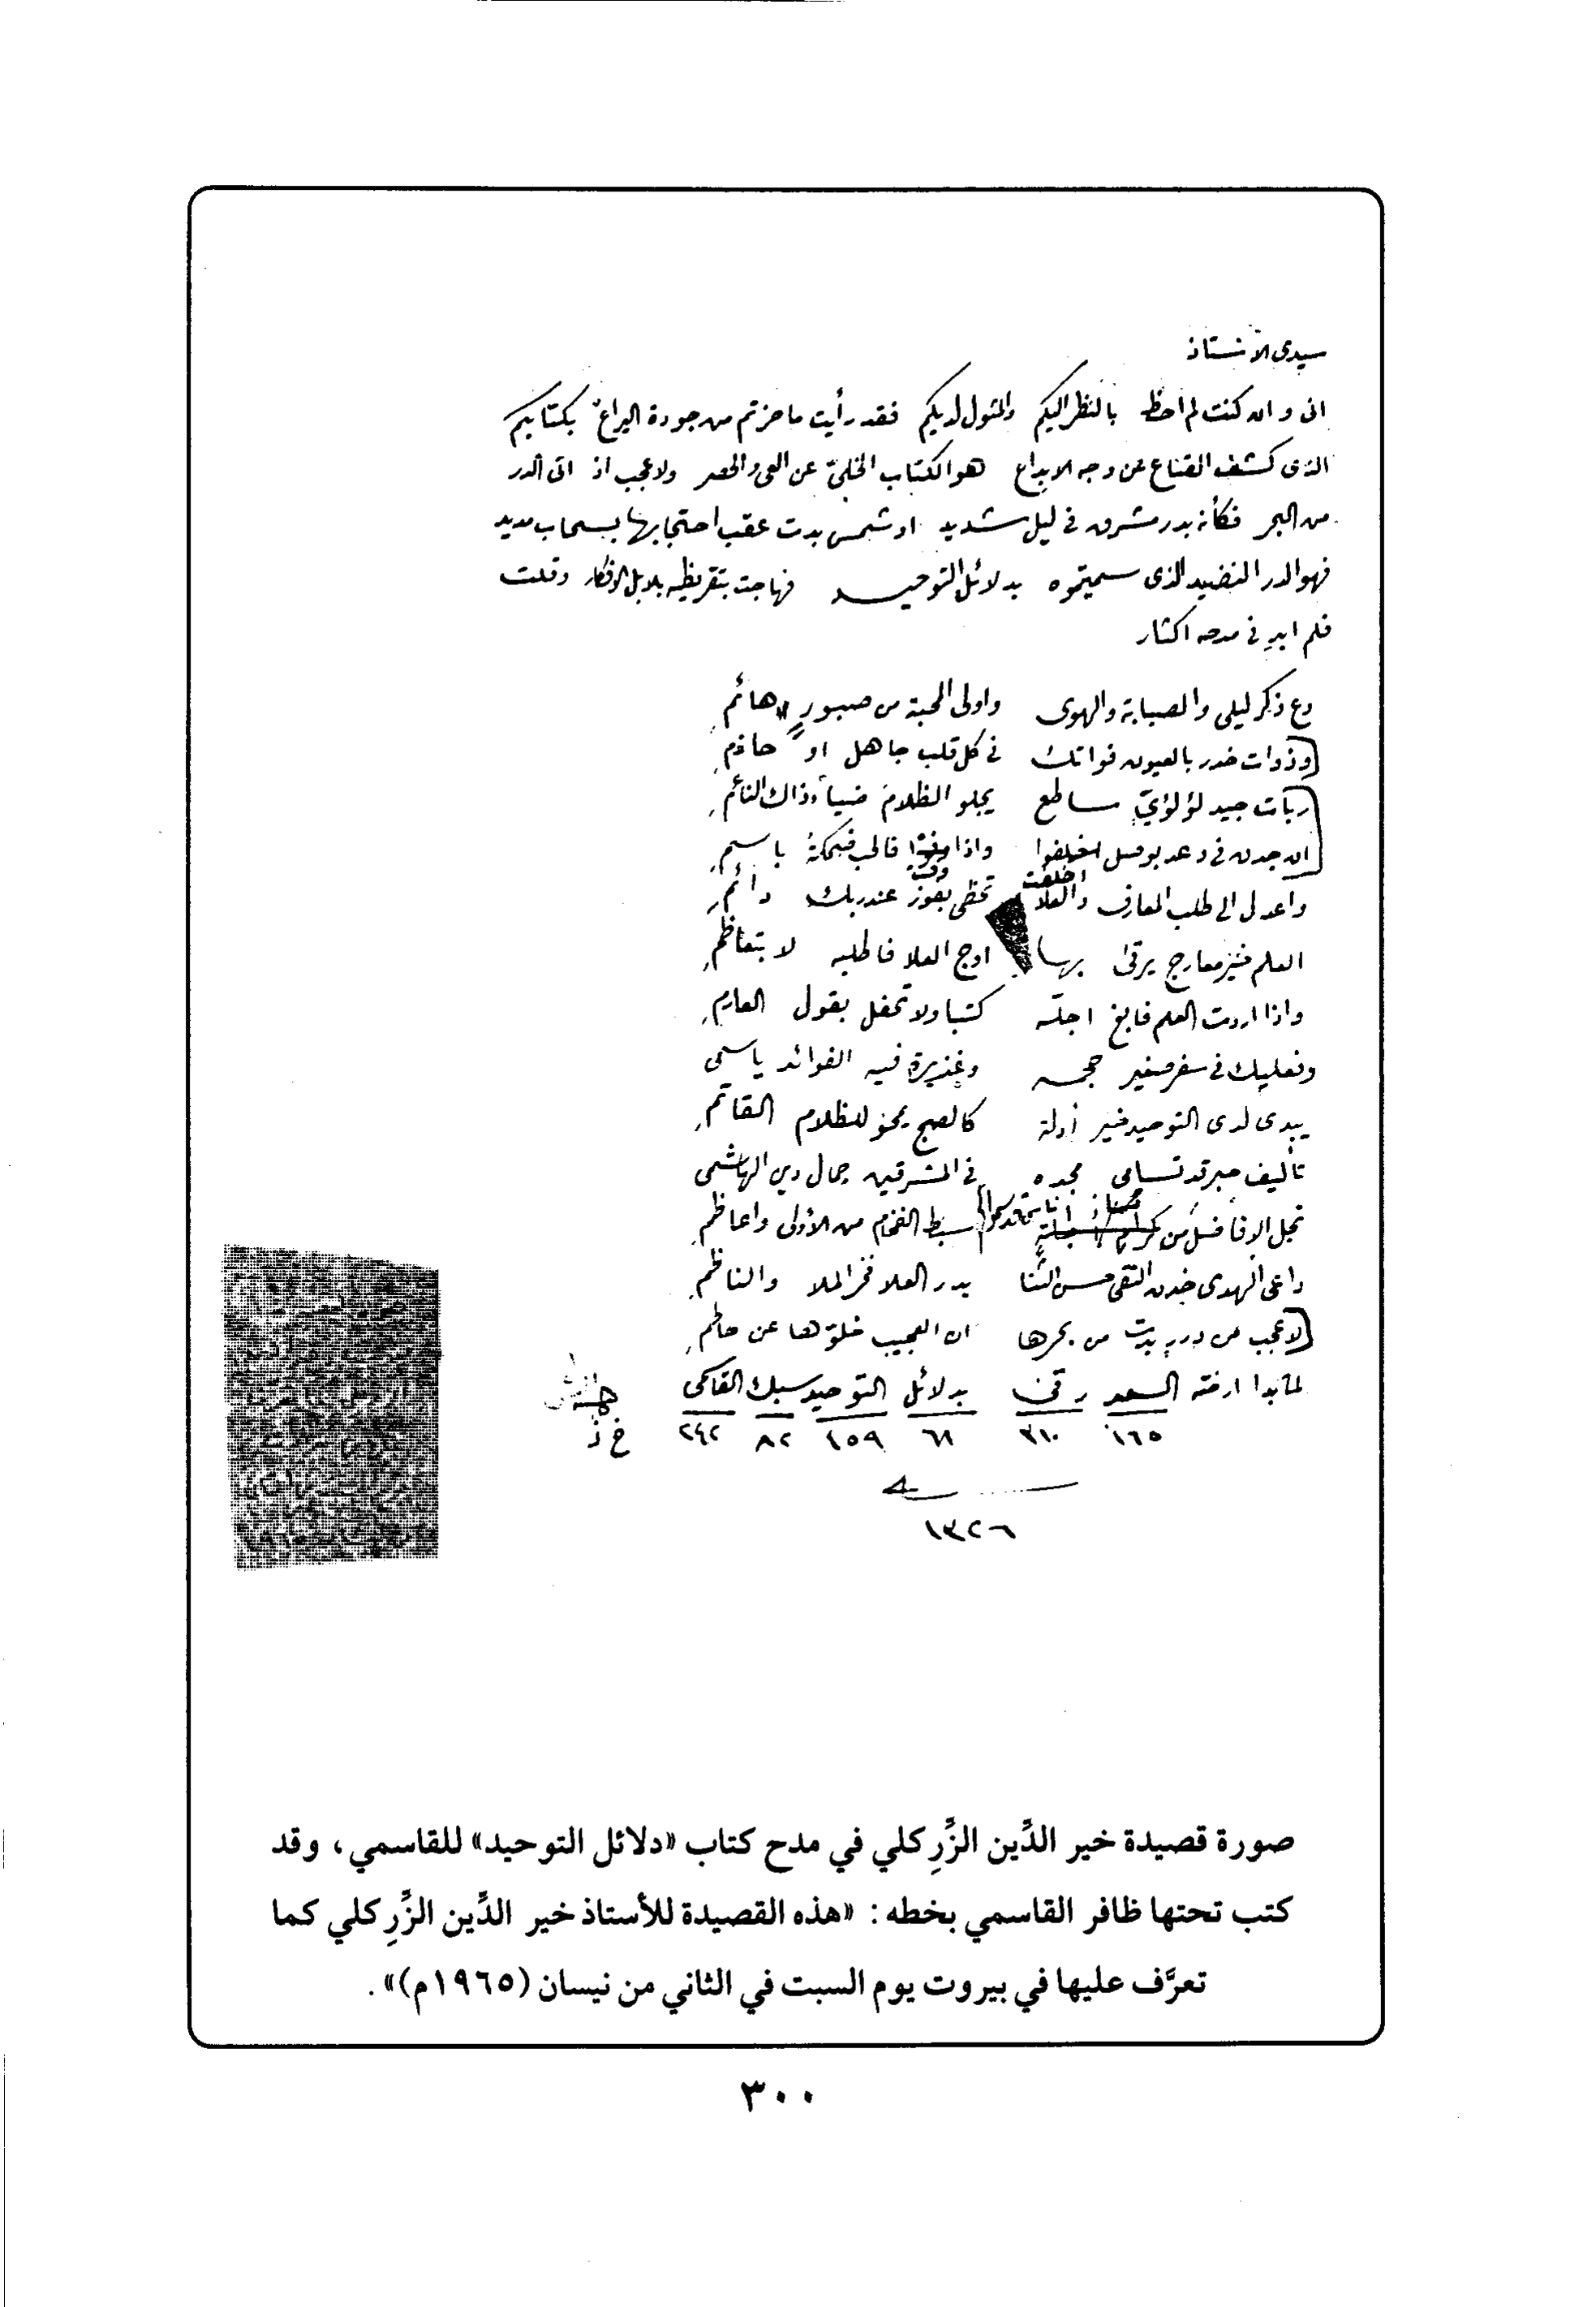 سيدى الأستاذ
انى وان كنت لم احظ بالنظر اليكم والمثول لديكم فقد رأيت ما حزتم من جودة اليراع بكتابكم
الذى كشف القناع عن وجه الابداع هو الكتاب الخلىّ عن العى والحصر ولا عجب اذ اتى الدر
من البحر فكأنه بدر مشرق فى ليل شديد او شمس بدت عقب احتجابها بسحاب مديد
فهو الدر النضيد الذى سميتموه بدلائل التوحيد فهاجت بتقريظه بلابل الافكار وقلت
فلم ابد فى مدحه اكثار
دع ذكر ليلى والصبابة والهوى واولى المحبة من صبور هائم
وذوات خدر بالعيون فواتك فى كل قلب جاهل او حازم
ربات جيد لؤلؤيّ ساطع يجلو الظلام ضياء ذاك الناعم
ان جدن فى وعد بوصل اخلفوا واذا قالب فبمكة باسم
اخلفت
واعدل الى طلب المعارف والعلا تحظى بفوز عند ربك دائم
العلم خير معارج يرقى بها اوج العلا فاطلبه لا بتعاظم
واذا اردت العلم فابغ اجلّه كتبا ولا تحفل بقول العارم
وتعليك فى سفر صغير حجمه وغزيرة فيه الفوائد ياسمى
يبدى لدى التوحيد خير أدلة كالصبح يمحو للظلام القاتم
تأليف حبر قد تسامى مجده فى المشرقين جمال دين الهاشمى
نجل الافاضل من كرام اجلة سبط الفخام من الأولى واعاظم
داعى الهدى خدن التقى حسن الثنا بدر العلا فخر الملا والناظم
لا عجب من درر بدت من بحرها ان العجيب خلوّها عن حاكم
لما بدا ارخته السعد رقى بدلائل التوحيد سبك القاسمى
١٦٥ ٣١٠ ٦٨ ٤٥٩ ٨٢ ٢٤٢
خ ز
سنة
١٣٢٦
صورة قصيدة خير الدِّين الزِّرِكلي في مدح كتاب «دلائل التوحيد» للقاسمي، وقد
كتب تحتها ظافر القاسمي بخطه: «هذه القصيدة للأستاذ خير الدِّين الزِّرِكلي كما
تعرَّف عليها في بيروت يوم السبت في الثاني من نيسان (١٩٦٥م)».
٣٠٠